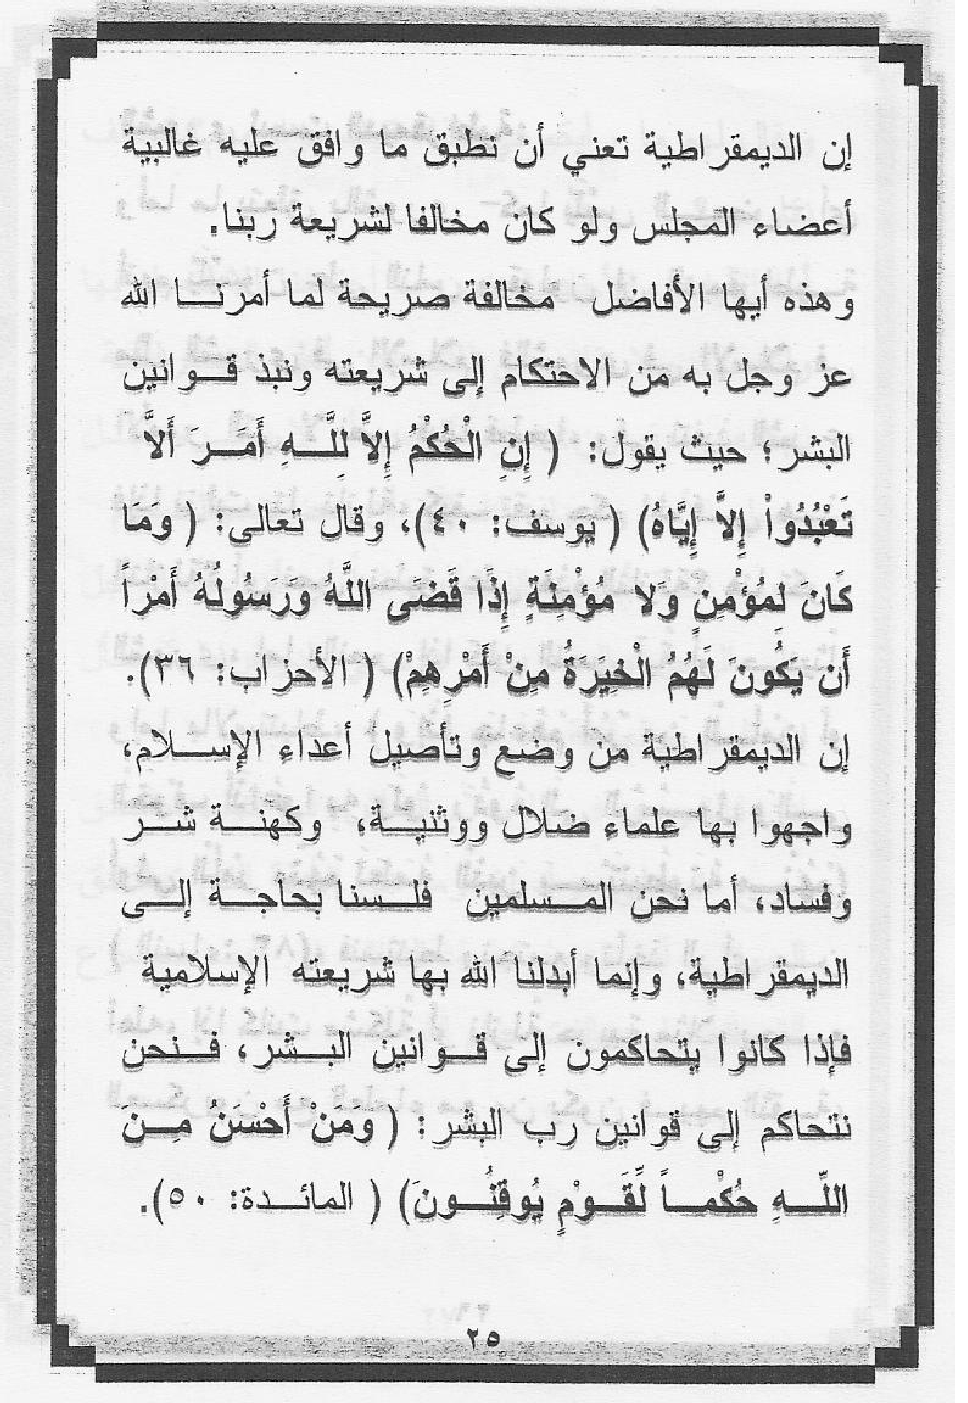 إن الديمقراطية تعني أن نطبق ما وافق عليه غالبية
أعضاء المجلس ولو كان مخالفا لشريعة ربنا.
وهذه أيها الأفاضل مخالفة صريحة لما أمرنا الله
عز وجل به من الاحتكام إلى شريعته ونبذ قوانين
البشر؛ حيث يقول: ( إِنِ الْحُكْمُ إِلاَّ لِلَّهِ أَمَرَ أَلاَّ
تَعْبُدُواْ إِلاَّ إِيَّاهُ) ( يوسف: ٤٠)، وقال تعالى: ( وَمَا
كَانَ لِمُؤْمِنٍ وَلا مُؤْمِنَةٍ إِذَا قَضَى اللَّهُ وَرَسُولُهُ أَمْراً
أَن يَكُونَ لَهُمُ الْخِيَرَةُ مِنْ أَمْرِهِمْ) ( الأحزاب: ٣٦).
إن الديمقراطية من وضع وتأصيل أعداء الإسلام،
واجهوا بها علماء ضلال ووثنية، وكهنة شر
وفساد، أما نحن المسلمين فلسنا بحاجة إلى
الديمقراطية، وإنما أبدلنا الله بها شريعته الإسلامية
فإذا كانوا يتحاكمون إلى قوانين البشر، فنحن
نتحاكم إلى قوانين رب البشر: ( وَمَنْ أَحْسَنُ مِنَ
اللّهِ حُكْماً لِّقَوْمٍ يُوقِنُونَ) ( المائدة: ٥٠).
٢٥